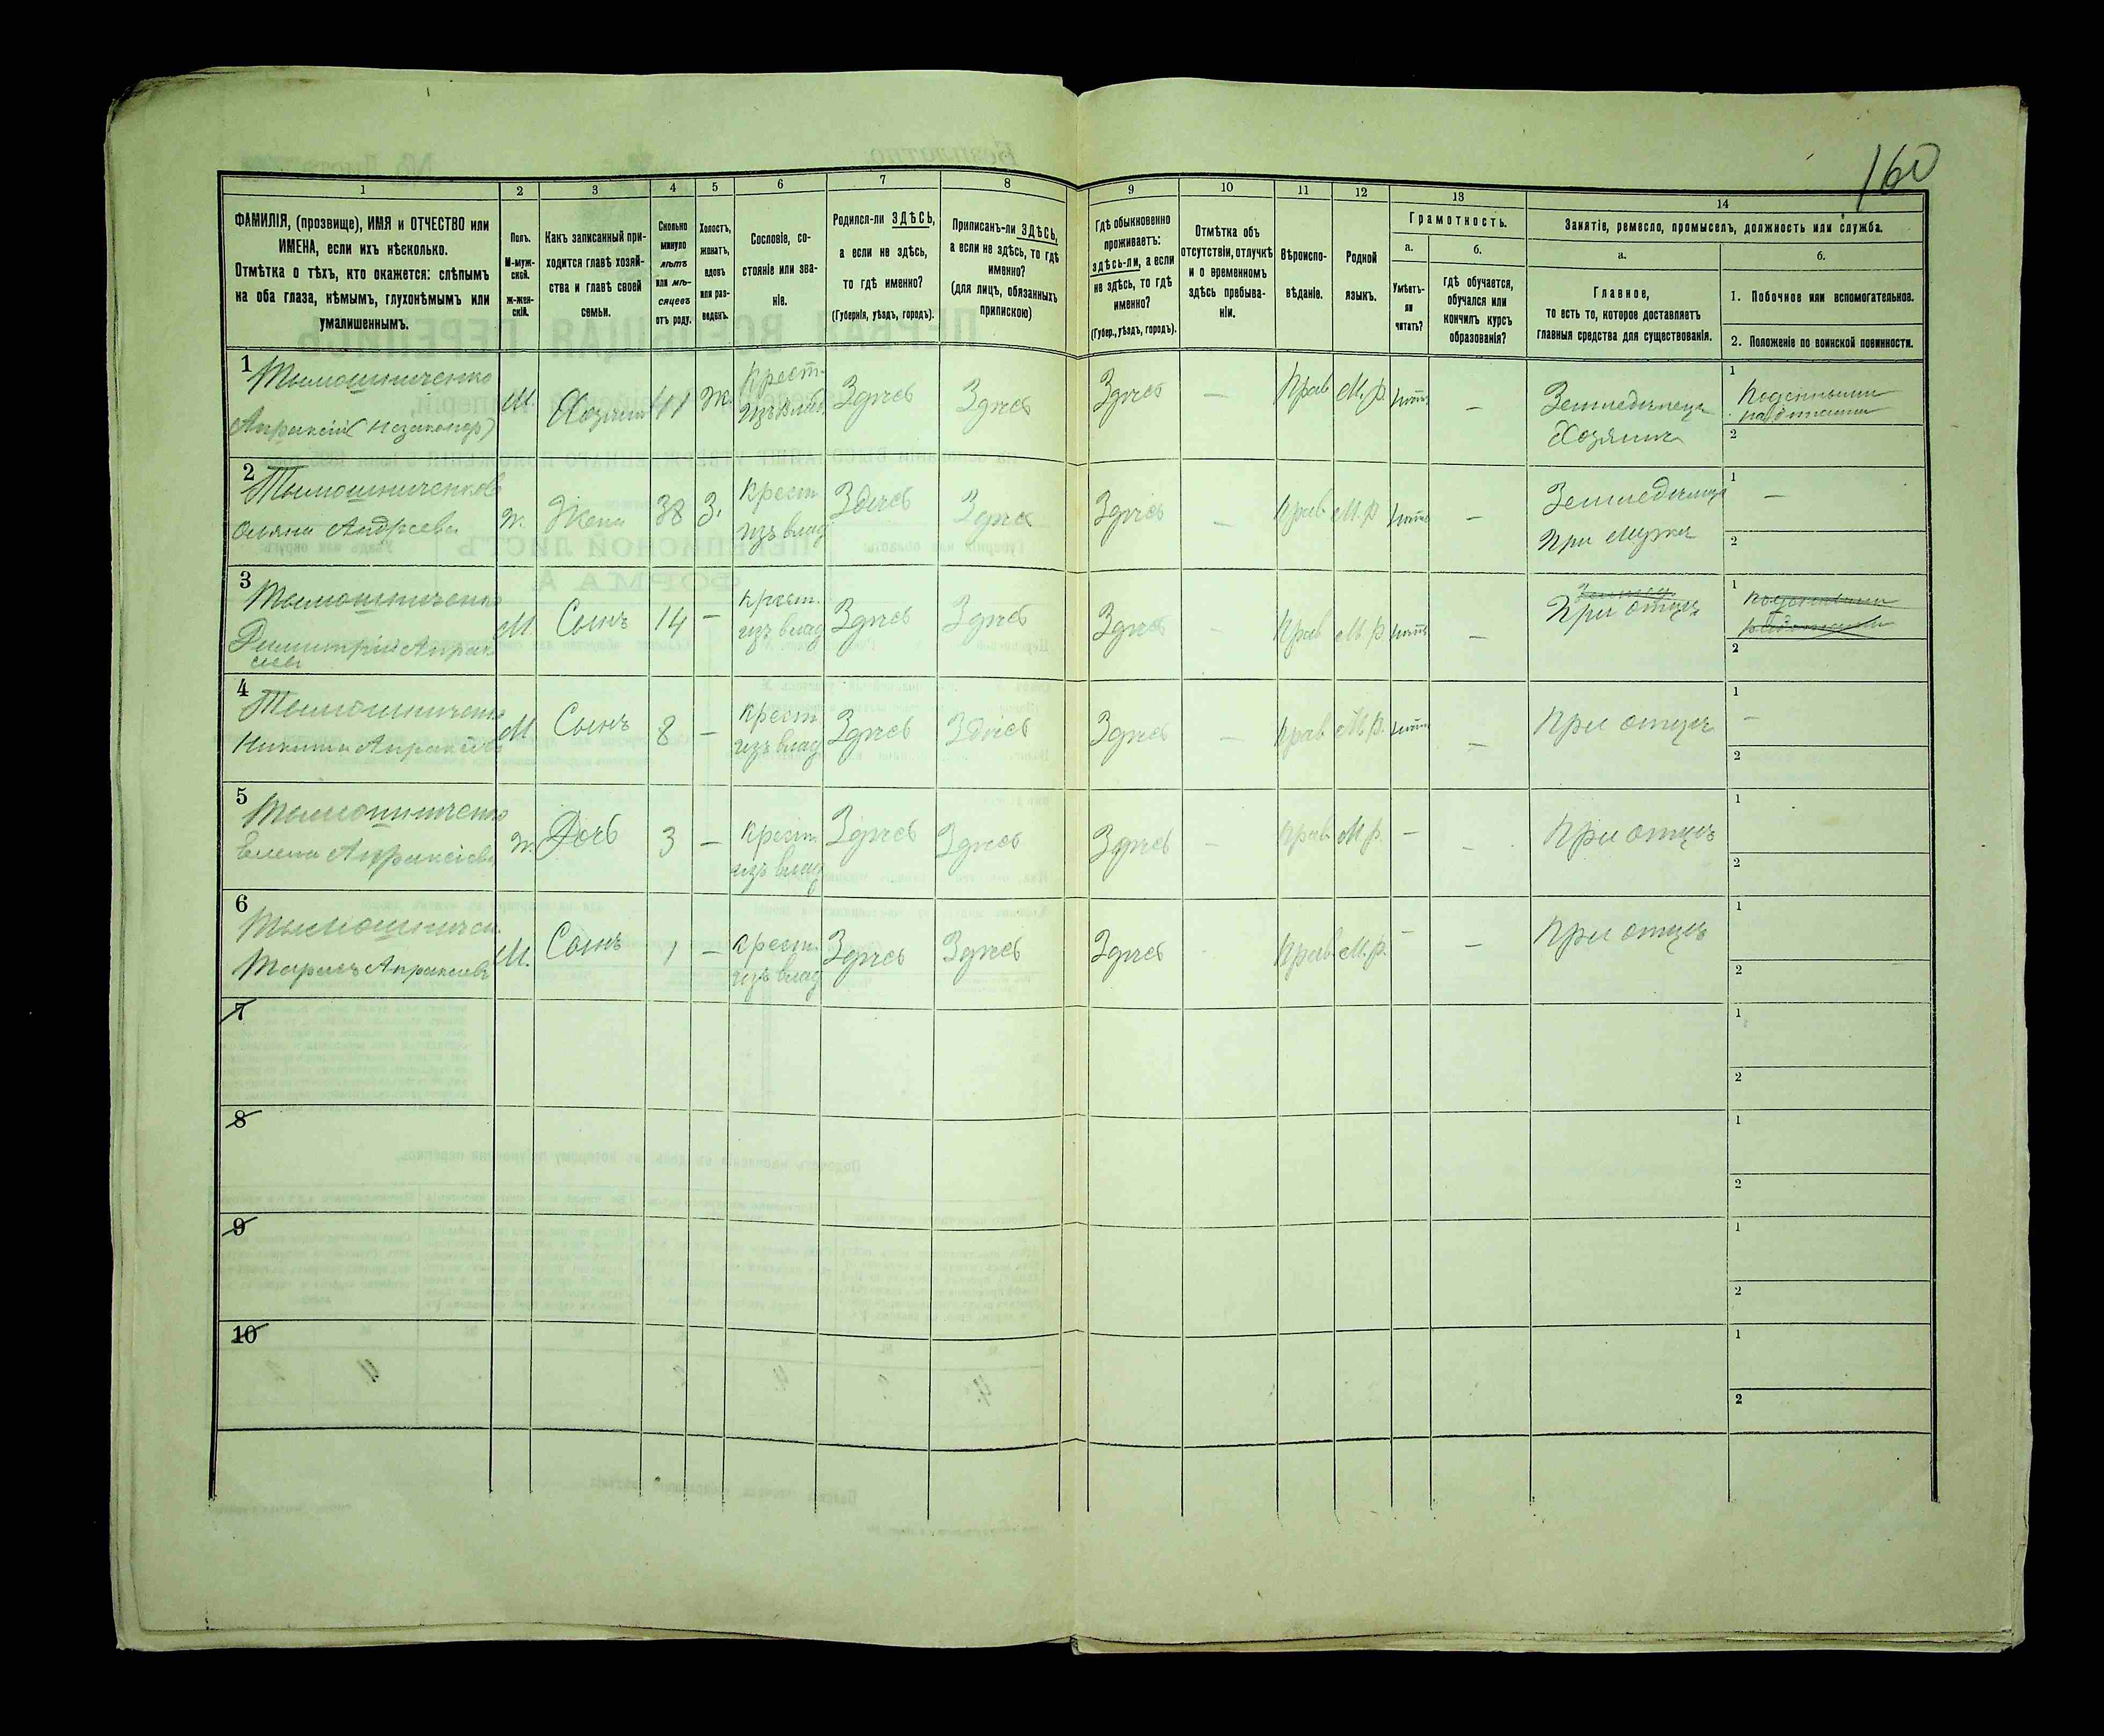 160
1 2 3 4 5 6 7 8 9 10 11 12 13 14
ФАМИЛІЯ, (прозвище), ИМЯ и ОТЧЕСТВО или
ИМЕНА, если ихъ нѣсколько.
Отмѣтка о тѣхъ, кто окажется: слѣпымъ
на оба глаза, нѣмымъ, глухонѣмымъ или
умалишеннымъ.
Полъ.
М-муж-
ской.
ж-жен-
скій.
Какъ записанный при-
ходится главѣ хозяй-
ства и главѣ своей
семьи.
Сколько
минуло
лѣтъ
или мѣ-
сяцевъ
отъ роду.
Холостъ,
женатъ,
вдовъ
или раз-
веденъ.
Сословіе, со-
стояніе или зва-
ніе.
Родился-ли ЗДѢСЬ,
а если не здѣсь,
то гдѣ именно?
(Губернія, уѣздъ, городъ).
Приписанъ-ли ЗДѢСЬ,
а если не здѣсь, то гдѣ
именно?
(для лицъ, обязанныхъ
припискою)
Гдѣ обыкновенно
проживаетъ:
здѣсь-ли, а если
не здѣсь, то гдѣ
именно?
(Губер., уѣздъ, городъ).
Отмѣтка объ
отсутствіи, отлучкѣ
и о временномъ
здѣсь пребыва-
ніи.
Вѣроиспо-
вѣданіе.
Родной
языкъ.
Грамотность.
а.
Умѣетъ-
ли
читать?
б.
гдѣ обучается,
обучался или
кончилъ курсъ
образованія?
Занятіе, ремесло, промыселъ, должность или служба.
а.
Главное,
то есть то, которое доставляетъ
главныя средства для существованія.
б.
1. Побочное или вспомогательное.
2. Положеніе по воинской повинности.
1 Тимошниченко
М. Хозяинъ 41 Ж. Крест. Здѣсь Здѣсь Здѣсь — Прав М.р. нѣтъ — Земледѣлецъ
Хозяинъ
1
2
2 Тимошниченкова
Андреева
ж. Жена 38 З. Крест
изъ влад Здѣсь Здѣсь Здѣсь — Прав М.р нѣтъ — Земледѣлица
При мужѣ
1 —
2
3 Тимошниченко
Димитрій
М. Сынъ 14 — Крест.
изъ влад Здѣсь Здѣсь Здѣсь — Прав М.р нѣтъ —
При отцѣ
1
2
4 Тимошниченко
Никита
М Сынъ 8 — Крест
изъ влад Здѣсь Здѣсь Здѣсь — Прав М.р. нѣтъ — При отцѣ
1 —
2
5 Тимошниченко
Елена
ж. Дочь 3 — Крест.
изъ влад Здѣсь Здѣсь Здѣсь — Прав М.р. — — При отцѣ
1
2
6 Тимошничен.
М. Сынъ 1 — Крест.
изъ влад Здѣсь Здѣсь Здѣсь Прав. М.р. — — При отцѣ
1
2
7 1
2
8 1
2
9 1
2
10 1
2